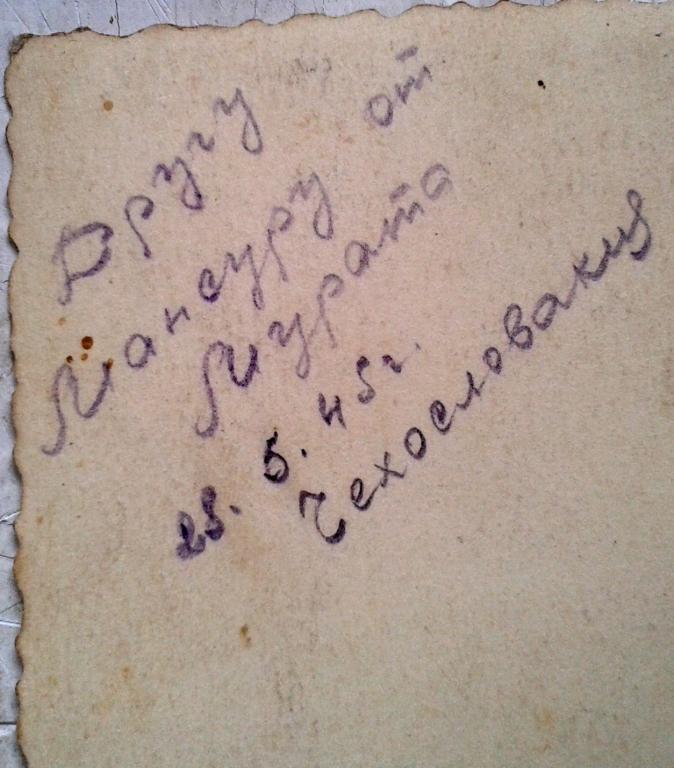 Другу
Мансуру от
Мурата
25. 5. 45г.
Чехословакия